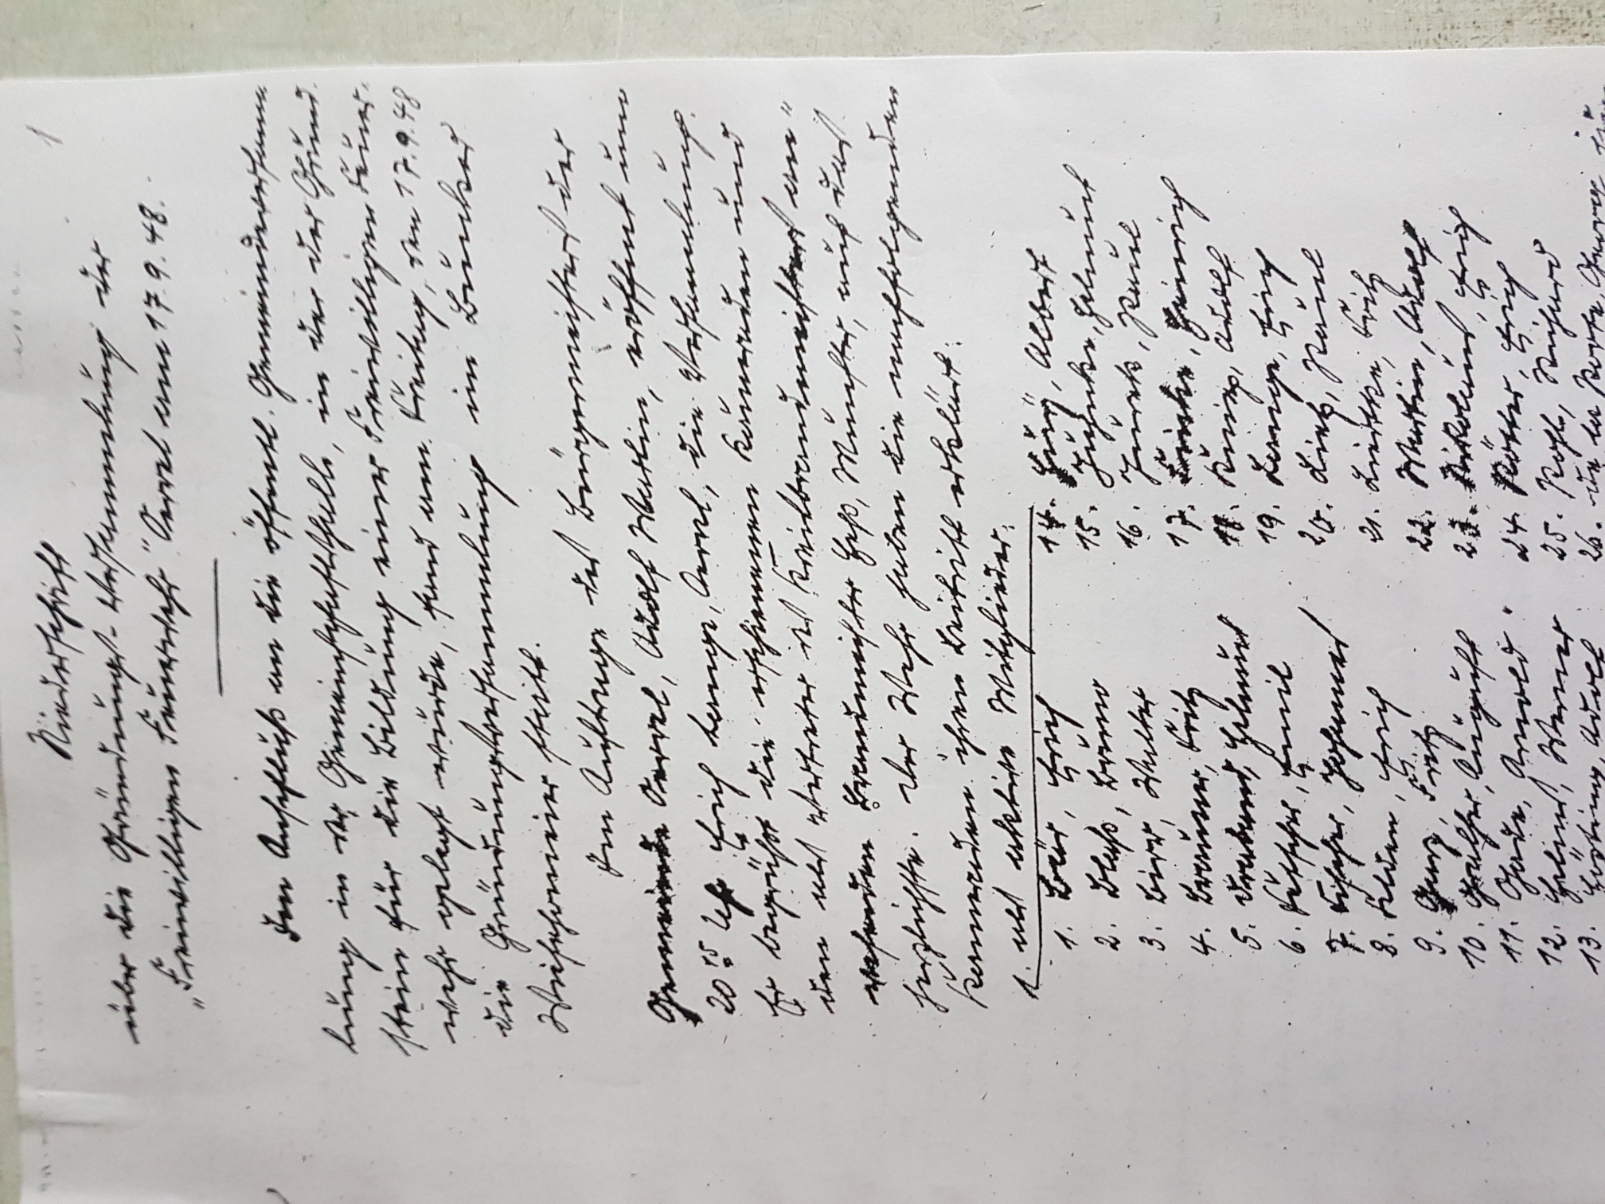 1
Niederschrift
über die Gründungs-Versammlung der
„Freiwilligen Feuerwehr" Oerrel am 17.9.48.
Im Anschluß an die öffentl. Gemeindeversamm
lung in der Gemeinschaftshalle, in der der Grund-
stein für die Bildung einer Freiwilligen Feuer-
wehr gelegt wurde, fand am Freitag, den 17.9.48
die Gründungsversammlung im Bunker
Wiesehomeier statt.
Im Auftrage des Bürgermeisters der
Gemeinde Oerrel, Adolf Martin, eröffent um
20 15 Uhr Erich Lange, Oerrel, die Versammlung.
Er begrüßt die erschienenen Kameraden und
den als Vertreter des Kreisbrandmeisters an-
wesenden Brandmeister Heß, Munster, auf das
herzlichste. Der Wehr haben die nachfolgenden
Kameraden ihren Beitritt erklärt:
1. als aktive Mitglieder:
1. Bär, Erich
2. Blaß, Bruno
3. Birr, Walter
4. Brauner, Fritz
5. Draband, Helmut
6. Fetscher, Emil
7. Fischer, Johannes
8. Felden, Erich
9. Garz, Fritz
10. August
11. Gade, Arnold
12. Helms, Werner
13. Höpting, Adolf
14. Huy, Albert
15. Juhnke, Helmut
16. Jurek, Paul
17. Finke, Heinrich
18. Kniep, Adolf
19. Lange, Erich
20. Lietz, Paul
21. Liedtke, Fritz
22. Martin, Adolf
23. Nikolaus, Erich
24. Pötter, Erich
25. Pohl, Richard
26. de la Porte, Georg jun